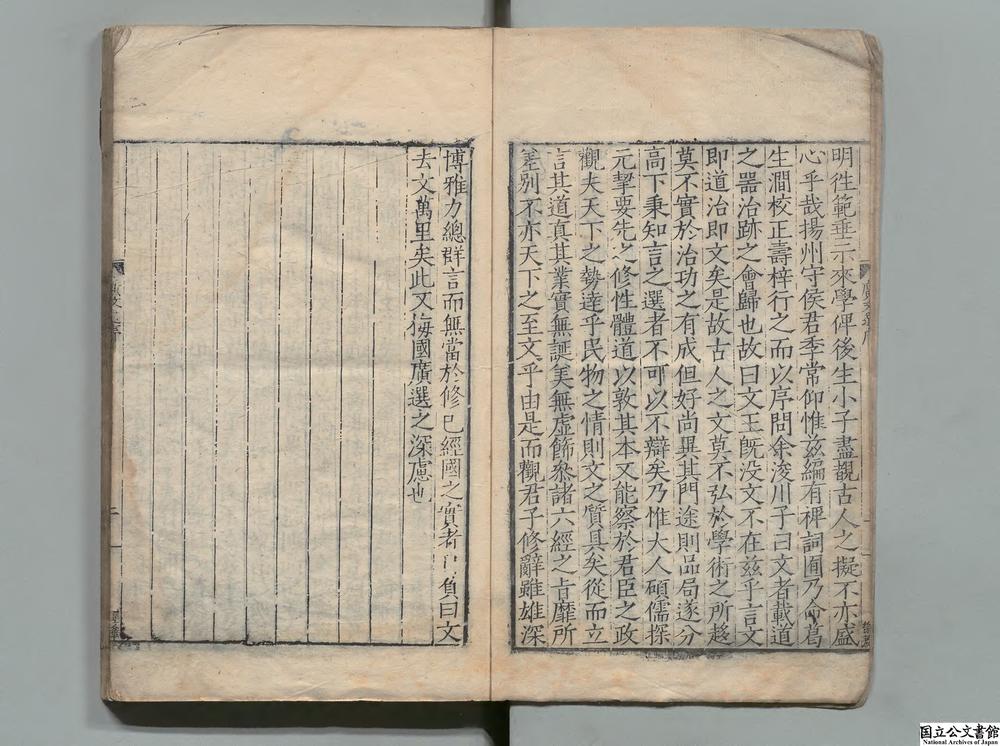 明徃範垂示來學俾後生小子盡覩古人之擬不亦盛
心乎哉揚州守侯君季常仰惟兹編有裨詞囿乃命葛
生澗校正壽梓行之而以序問余浚川子曰文者載道
之器治跡之會歸也故曰文王旣没文不在兹乎言文
即道治即文矣是故古人之文莫不弘於學術之所趍
莫不實於治功之有成但好尚異其門途則品局遂分
高下秉知言之選者不可以不辯矣乃惟大人碩儒探
元挈要先之修性體道以敦其本又能察於君臣之政
觀夫天下之勢達乎民物之情則文之質具矣從而立
言其道真其業實無誕美無虚飾叅諸六經之旨靡所
差别不亦天下之至文乎由是而觀君子修辭雖雄深
廣文選序
博雅力總群言而無當於修己經國之實者以負曰文
去文萬里矣此又海國廣選之深慮也
二
国立公文書館
National Archives of Japan